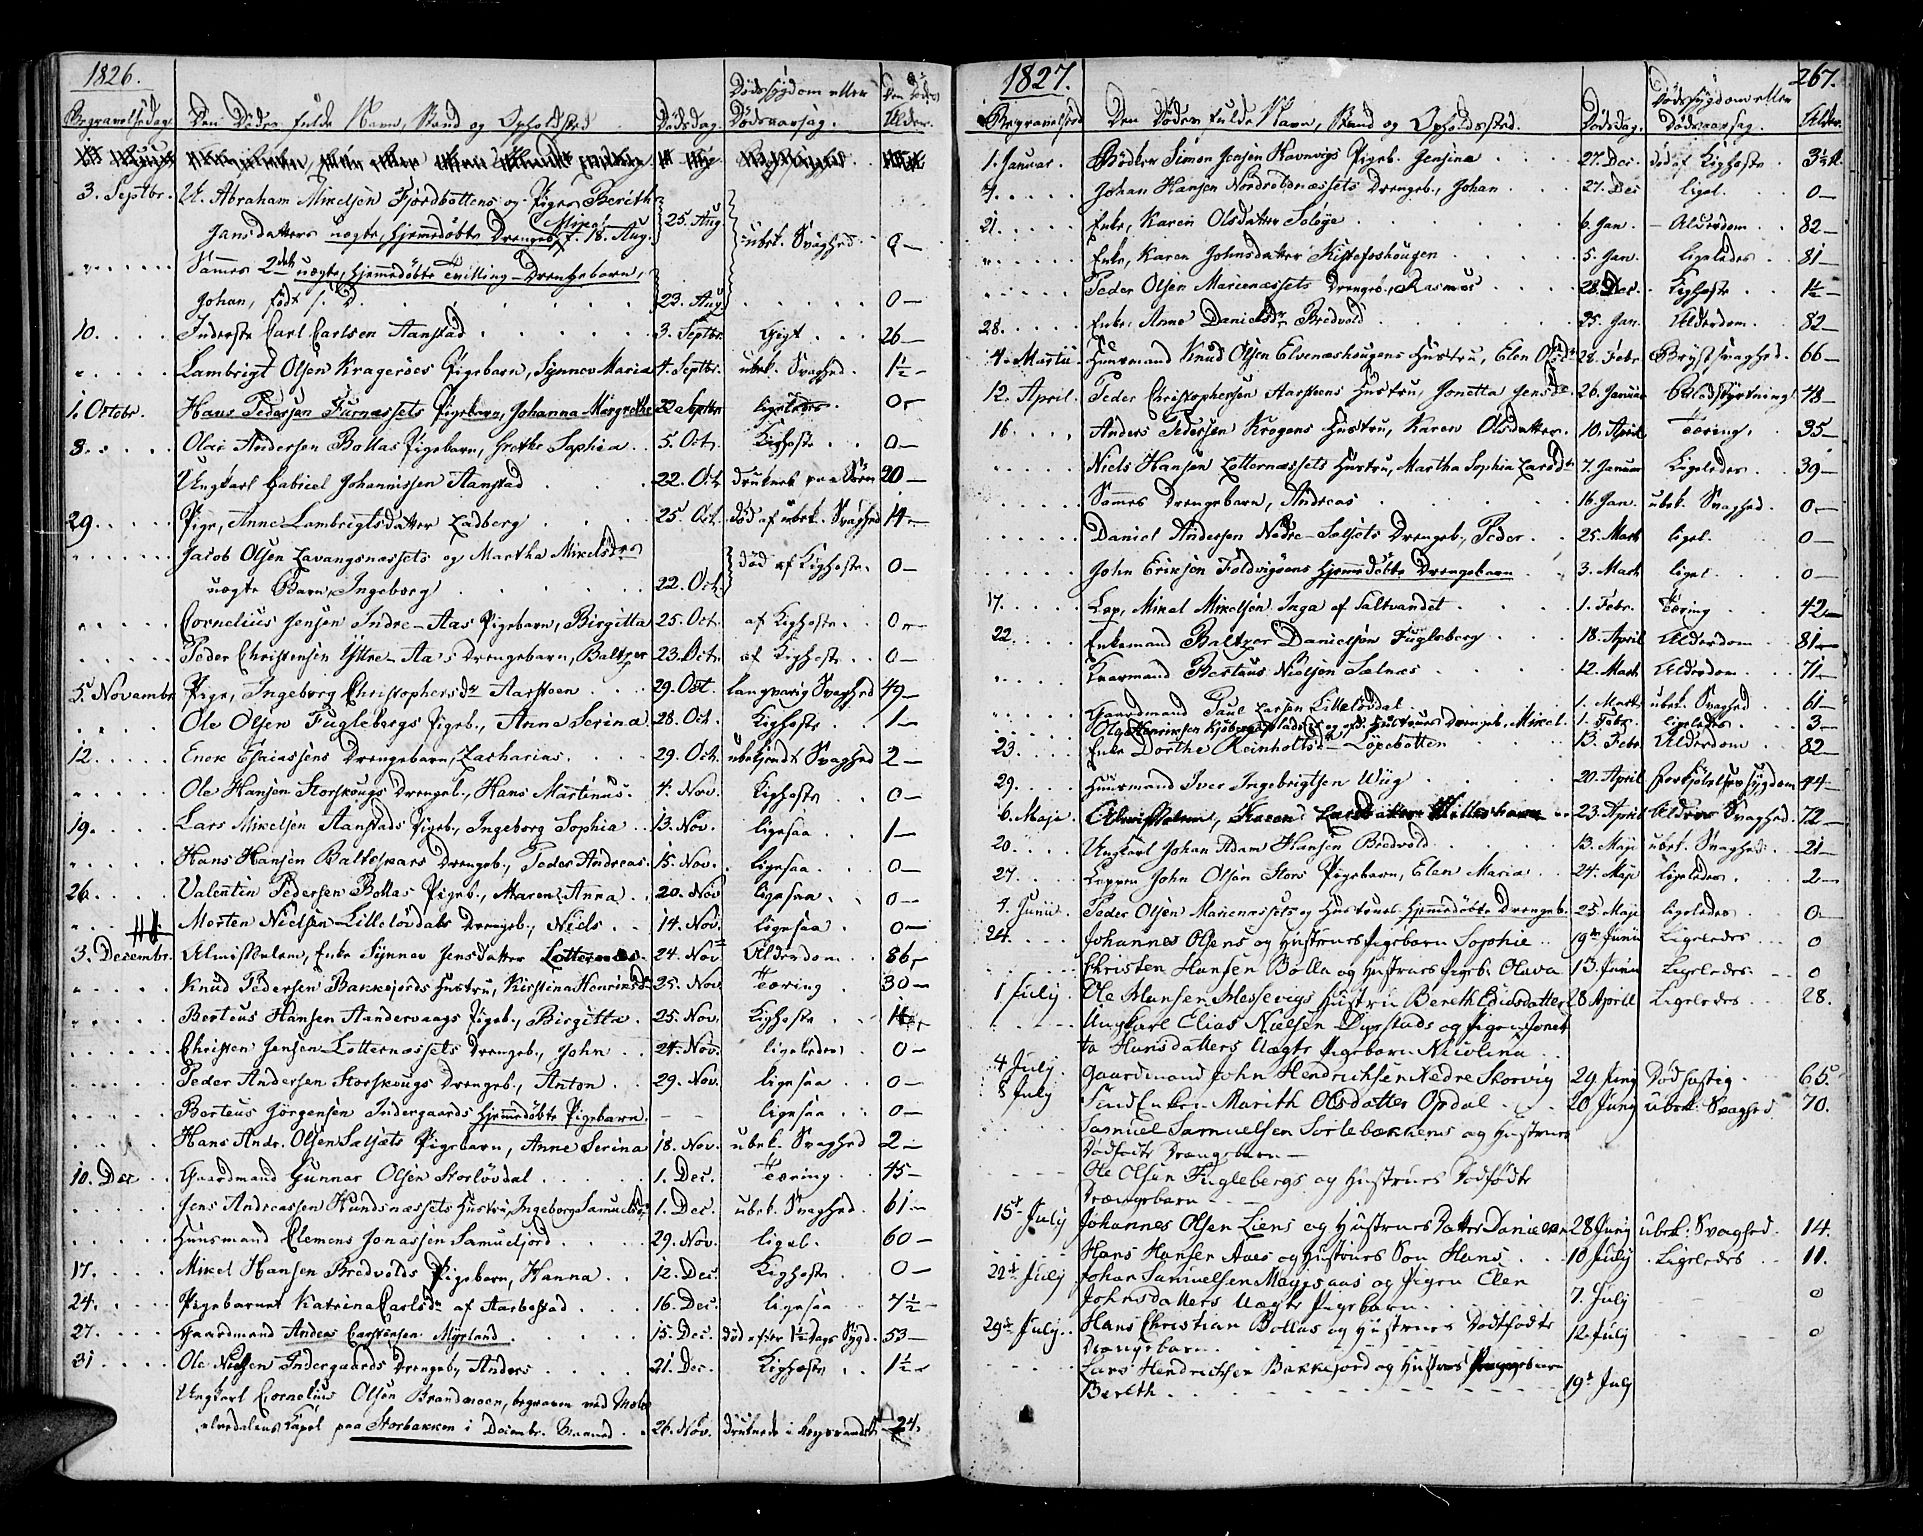 1826.
Begravelsesdag. Den Dødes fulde Navn, Stand og Opholdssted Dødsdag. Dødssygdom eller Dødsaarsag. Den Dødes Alder.
3. Septbr. U. Abraham Mikelsen Fjordbottens og Pigen Berith
Jansdatters uægte, hjemmedøbte Drengeb. Mikel f. 18. Aug. 25 Aug. ubek. Svaghed 0 —
Sammes 2det uægte, hjemmedøbte Tvilling-Drengebarn,
Johan, født s. D. 23. Aug. 0 —
10. Inderste Carl Carlsen Aanstad 3. Septbr. Gigt 26 —
Lambrigt Olsen Kragerøes Pigebarn, Synnev Maria 4. Septbr. ubek. Svaghed. 1½ —
1. Octobr. Hans Pedersen Furnæssets Pigebarn, Johanna Margrethe 22 Septbr. ligeledes 0 —
8. Olai Andersen Bollas Pigebarn, Grethe Sophia 5. Oct. Kighoste 0 —
Ungkarl Gabriel Johannissen Aanstad 22. Oct. druknet paa Søen 20 —
29. Pige, Anne Lambrigtsdatter Ladberg 25. Oct. død af ubek. Svaghed 14 —
Jacob Olsen Lavangsnæssets og Martha Mikelsdrs
uægte Barn, Ingeborg 22. Oct. død af Kighoste. 0 —
Cornelius Jensen Indre-Aas Pigebarn, Birgitta 25. Oct. af Kighoste. 0 —
Peder Christensen Yttre-Aas Drengebarn, Baltzer 23. Oct. af Kighoste 0 —
5. Novembr. Pige, Ingeborg Christophersdr Aarsteen 29. Oct. langvarig Svaghed 49 —
Ole Olsen Fuglebergs Pigeb., Anna Serina 28. Oct. Kighoste. 1 —
12. Enok Esaiassens Drengebarn, Zacharias. 29. Oct. ubekjendt Svaghed 2 —
Ole Hansen Storskougs Drengeb., Hans Martinus. 4. Nov. Kighoste 0 —
19. Lars Mikelsen Aanstads Pigeb., Ingeborg Sophia 13. Nov. ligesaa 1 —
Hans Hansen Baltespars Drengeb., Peder Andreas. 15. Nov. ligesaa. 0 —
26. Valentin Pedersen Bollas Pigeb., Maren Anna 20. Nov ligesaa 0 —
Morten Nielsen Lilleløvdals Drengeb., Niels 14. Nov. ligesaa 0 —
3. Decembr. Almisselem, Enke Synnev Jensdatter Lotternæs. 24. Nov Alderdom. 86, —
Knud Pedersen Bakkejords Hustru, Kirstina Henriksdr 25. Nov Tæring. 30 —
Berteus Hansen Sandervaags Pigeb., Birgitta. 25. Nov. Kighoste
Christen Jensen Lotternæssets Drengeb., John 24. Nov. ligeledes 0 —
Peder Andersen Storskougs Drengeb., Anton 29. Nov. ligesaa 0 —
Berteus Jørgensen Indergaards hjemmedøbte Pigebarn. — — ligesaa 0 —
Hans Andr. Olsen Salsæts Pigebarn, Anne Serina 18. Nov. ubek. Svaghed 2 —
10. Dec Gaardmand Gunnar Olsen Storløvdal 1. Dec. Tæring. 45 —
Jens Andreassen Hundsnæssets Hustru, Ingeborg Samuelsdr 1. Dec. ubek. Svaghed. 61 —
Huusmand Clemens Jonassen Samuejord 29. Nov. ligel. 60 —
17. Mikel Hansen Bredvolds Pigebarn, Hanna 12. Dec. Kighoste 0 —
24. Pigebarnet Katrina Carlsdr af Aarbostad 16. Dec. ligesaa 7½ —
27. Gaardmand Andeas Carstensen Myrland. 15. Dec. død efter 1½ Dags Sygd. 53 —
31 Ole Nielsen Indergaards Drengeb., Anders 21. Dec. Kighoste 1½ —
Ungkarl Cornelius Olsen Brandmoen, begraven ved Maals-
elvedalens Capel paa Storbakken i Decembr. Maaned 26. Nov. druknede i 24.
1827. 267.
Begravelsesd Den Dødes fulde Navn, Stand og Opholdssted. Dødsdag. Dødssygdom eller Dødsaarsag. Alder.
1. Januar. Bødker Simon Jensen Havnvigs Pigeb. Jensina 27. Dec. død af Kighoste 3½
7. Johan Hansen Nordrolnæssets Drengeb., Johan 27. Dec ligel. 0 —
21. Enke, Karen Olsdatter Søløye 6. Jan. Alderdom 82 —
Enke, Karen Johnsdatter Kistefoshougen 5. Jan. ligeledes 81 —
Peder Olsen Marienæssets Drengeb., Rasmus 28. Dec. Kighoste 1½ —
28. Enke, Anne Danielsdr Bredvold 25. Jan. Alderdom 82 —
4. Martii Huusmand Knud Olsen Elvenæshougens Hustru, Elen Olsdr 28. Febr. Brystsvaghed. 66 —
12. April. Peder Christophersen Aarsteens Hustru, Jonetta Jensdr 26. Januar Blodstyrtning 48 —
16. Anders Pedersen Krogens Hustru, Karen Olsdatter. 10. April Tæring. 35 —
Niels Hansen Lotternæssets Hustru, Martha Sophia Larsdr 7. Januar Ligeledes 39 —
Sammes Drengebarn, Andreas 16 Jan. ubek. Svaghed. 0 —
Daniel Andersen Nedre-Salsets Drengeb., Peder 25. Mart ligel. 0 —
John Eriksen Foldvigøens hjemmedøbte Drengebarn 3. Mart ligel. 0 —
17. Lap, Mikel Mikelsen Inga af Saltvandet 1. Febr. Tæring 42 —
22. Enkemand Baltzer Danielsen Fugleberg 18. April Alderdom 81 —
Kaarmand Bertæus Nielsen Salnes 12. Mart Alderdom 71 —
Gaardmand Paul Larsen Lilleløvdal 1. Marts ubek. Svaghed 61 —
Ole Henriksen Hustrues Drengeb. Mikel. 1. Febr. ligeledes 3 —
23. Enke Dorthe Reinholtsdr Løxebotten 13. Febr Alderdom 82 —
29. Huusmand Iver Ingebrigtsen Wiig 20. April Forkjølelsessygdom 44 —
6. Maje Almisselem, Karen Larsdatter 23. April Alders Svaghed. 72 —
20. Ungkarl Johan Adam Hansen Bredvold 13. Maji ubek. Svaghed 21 —
27. Lappen John Olsen Stors Pigebarn, Elen Maria 24. Maji ligeledes 2 —
4. Junii Peder Olsen Marienæssets og Hustrues hjemmedøbte Drengeb. 25. Maji ligeledes 0 —
24. Johannes Olsens og Hustrues Pigebarn Sophie 19de Junii Ligeledes 0
Christen Hansen Bolla og Hustrues Pigeb. Olava 13. Junii Ligeledes 0
1 July Ole Hansen Messevigs Hustru Bereth Eliasdatter 28 Aprill Ligeledes 28.
Ungkarl Elias Nielsen Dyrstads og Pigen Jonet
ta Hansdatters Uægte Pigebarn Nicolina
4 July Gaardmand John Hendrichsen Nedre Storvig 29 Juny Dødfastig 65
8 July Find Enke Marith Olsdatter Opdal 20 Juny ubek: Svaghed 70.
Samuel Samuelsen Sørlebækkens og Hustrues
Dødfødte Drengebarn —
Ole Olsen Fuglebergs og Hustrues Dødfødte
Drengebarn
15de July Johannes Olsen Liens og Hustrues Datter Danielen 28 Juny ubek: Svaghed 14.
Hans Hansen Aaes og Hustrues Søn Hans 10 July Ligeledes 11.
22de July Johan Samuelsen Maggsaas og Pigen Elen
Johnsdatters Uægte Pigebarn 7. July 0
29de July Hans Christian Bollas og Hustrues Dødfødte
Drengebarn. 12 July 0
Lars Hendrichsen Bakkejord og Hustrues Pigebarn
Bereth 19de July